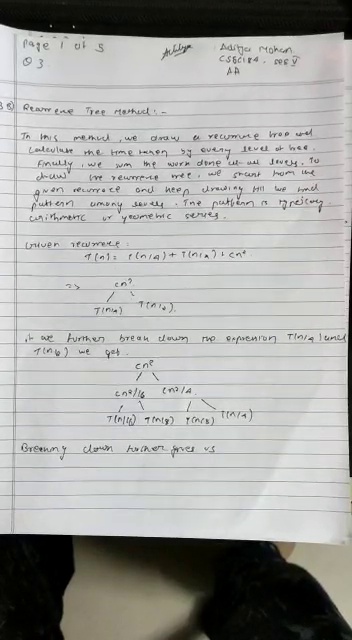 Page 1 of 5
Aditya Mohan
Q3
CSBC184. sec V
AA
Recurrene Tree Method:-
In this method, we draw a recurrence tree and
calculate the time taken by every level of tree.
Finally, we sum the work done at all levels. To
draw the recurrence tree, we start from the
given recurrence and keep drawing till we find
pattern among levels. The pattern is typically
arithmetic or geometric series.
Given recurrence:
T(n) = T(n/4) + T(n/2) + cn²
=> cn²
T(n/4) T(n/2).
we further break down the expression T(n/4) and
T(n/2) we get.
cn²
cn²/16 cn²/4
T(n/16) T(n/8) T(n/8) T(n/4)
Breaking down further gives us